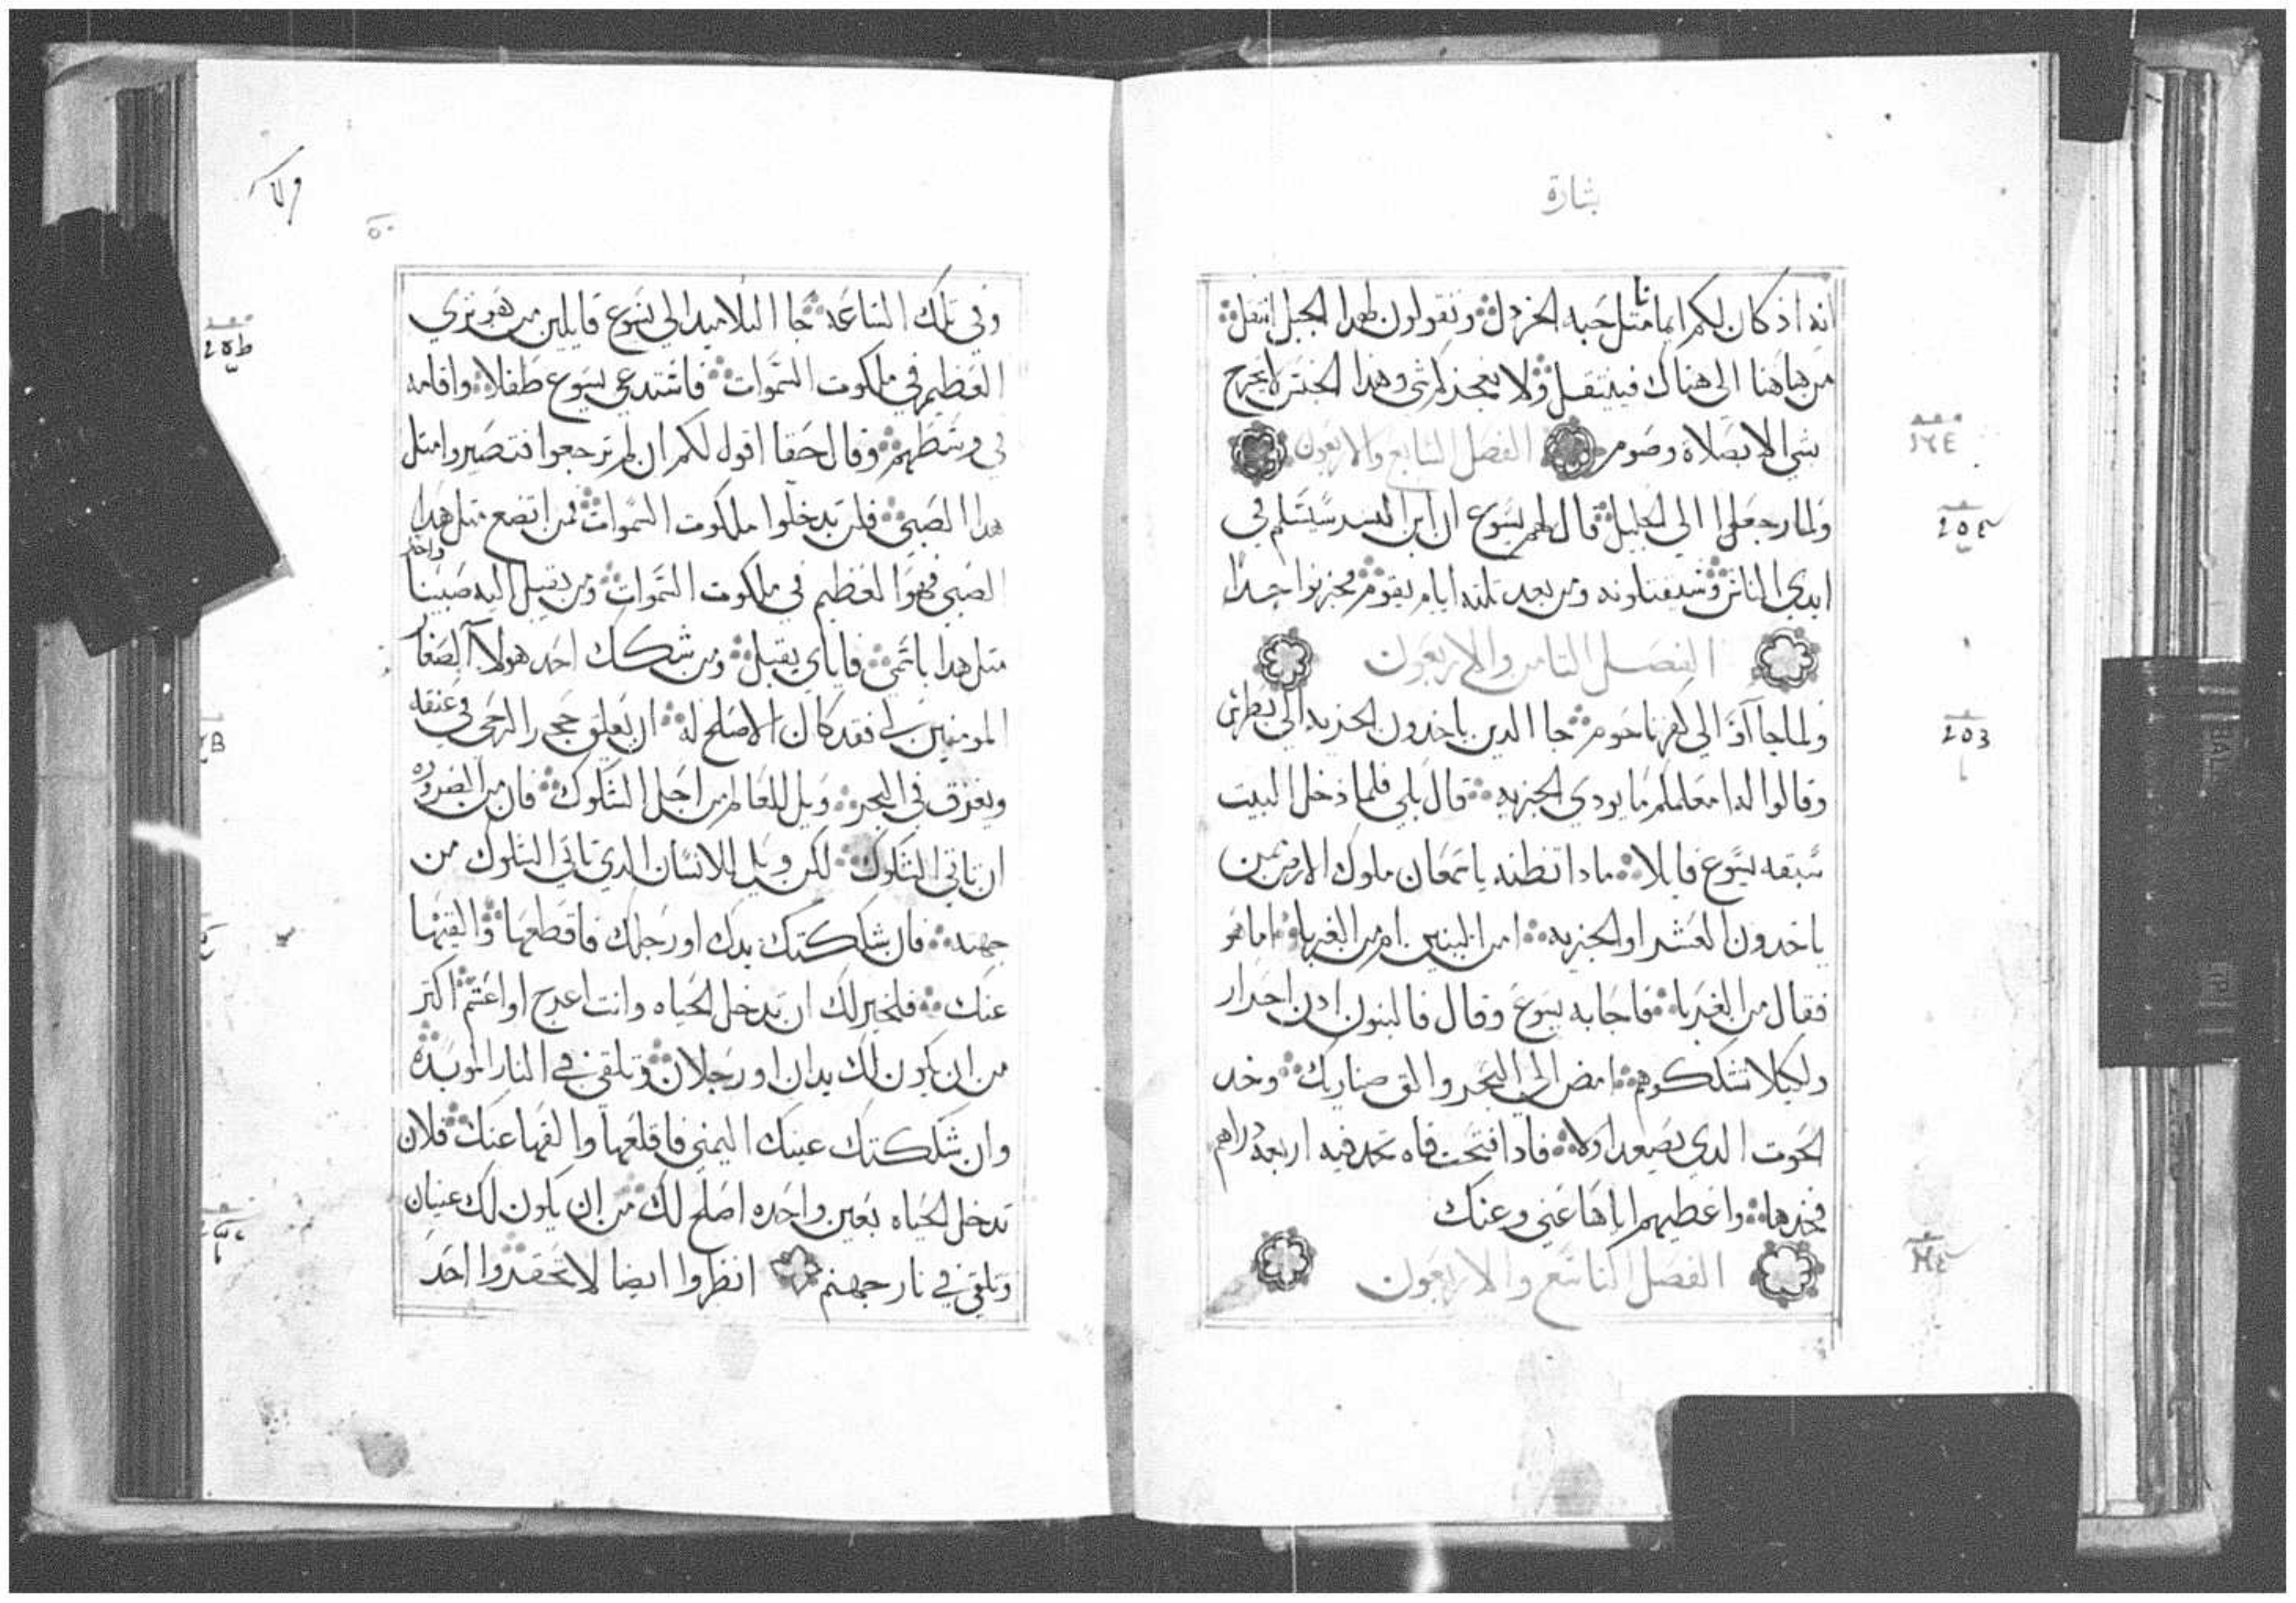 بشارة
انه اذ كان لكم ايمانا مثل حبه الخردل وتقولون لهدا الجبل انتقل
من هاهنا الى هناك فينتقل ولا يعجزكم شي وهدا الجنس لا يخرج
بشي الا بصلاة وصوم الفصل السابع والاربعون
ولما رجعوا الى الجليل قال لهم يسوع ان ابن البشر سيسلم في
ايدي الناس وسيقتلونه ومن بعد تلته ايام يقوم فحزنوا جدا
الفصل التامن والاربعون
ولما جاآوا الى كفرناحوم جا الدين ياخدون الجزيه الى بطرس
وقالوا له معلمكم ما يودي الجزيه قال بلى فلما دخل البيت
سبقه يسوع قايلا مادا تظنه ياسمعان ملوك الارض ممن
ياخدون العشر او الجزيه امن البنين ام من الغربا اما هو
فقال من الغربا فاجابه يسوع وقال فالبنون ادن احرار
ولكيلا نشككهم امض الى البحر والق صنارتك وخد
الحوت الدي يصعد اولا فادا فتحت فاه تجد فيه اربعة دراهم
فخدها واعطيهم اياها عني وعنك
الفصل التاسع والاربعون
وفي تلك الساعه جا التلاميد الى يسوع قايلين من هو ترى
العظيم في ملكوت السموات فاستدعى يسوع طفلا واقامه
في وسطهم وقال حقا اقول لكم ان لم ترجعوا فتصيروا متل
هدا الصبي فلن تدخلوا ملكوت السموات فمن اتضع متل هدا
الصبي فهو العظيم في ملكوت السموات ومن يقبل اليه صبيا واحدا
متل هدا باسمي فاياي يقبل ومن شكك احد هولآ الصغار
المومنين بي فقد كان الاصلح له ان يعلق حجر الرحى في عنقه
ويغرق في البحر ويل للعالم من اجل الشكوك فان من الضروره
ان تاتي الشكوك لكن ويل للانسان الدي تاتي الشكوك من
جهته فان شككتك يدك او رجلك فاقطعها والقيها
عنك فلخير لك ان تدخل الحياه وانت اعرج او اعسم اكتر
من ان يكون لك يدان او رجلان وتلقى في النار الموبده
وان شككتك عينك اليمني فاقلعها والقها عنك فلان
تدخل الحياه بعين واحده اصلح لك من ان يكون لك عينان
وتلقى في نار جهنم انظروا ايضا لا تحقروا احد